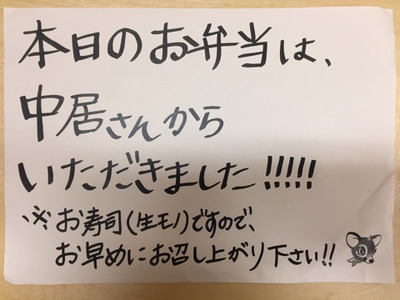 本日のお弁当は、
中居さんから
いただきました!!!!!
※お寿司(生モノ)ですので、
お早めにお召し上がり下さい!!